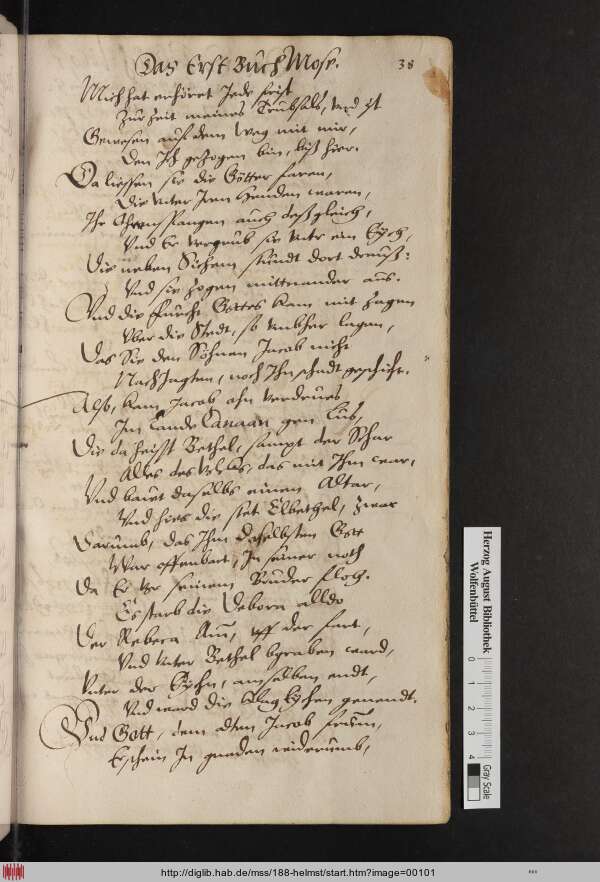 Das Erst Buch Mose.
38
Mich hat erhöret Jede frist
Zur Zeit meines Trubsals, Und ist
Gewesen auf dem Weg mit mir,
Den Ich gezogen bin, biß hier.
Da liessen sie die Götter faren,
Die Vnter Iren Henden waren,
Ihr Ohrenspangen auch deßgleich,
Vnd Er vergrub sie Vnter ein Eÿch,
Die neben Sichem stundt dort drauß:
Vnd sie zogen mitteinander aus.
Vnd die furcht Gottes kam mit Zagen
Vber die Stedt, so Vmbher lagen,
Das Sie den Söhnen Jacob nicht
Nach Jagten, noch Ihn schadt geschicht.
Also, kam Jacob ohn Verdrus,
Im Lande Canaan gen Lus,
Die da heisst Bethel, sampt der Schar
Alles des Volcks, das mit Ihm war,
Vnd bauet daselbs einen Altar,
Vnd hies die stet Elbethel, Zwar
Darumb, das Ihm daselbsten Gott
War offenbart, In seiner noth
Da Er Vor seinem Bruder floch.
Es starb die Debora alldo
Der Rebeca Am, vff der fart,
Vnd Vnter Bethel bgraben ward,
Vnter der Eÿchen, am selben endt,
Vnd ward die Klag Eÿchen genendt.
Vnd Gott, dem alten Jacob frum,
Erschein In gnaden widerumb,
Herzog August Bibliothek
Wolfenbüttel
0 1 2 3 4
Gray Scale
http://diglib.hab.de/mss/188-helmst/start.htm?image=00101